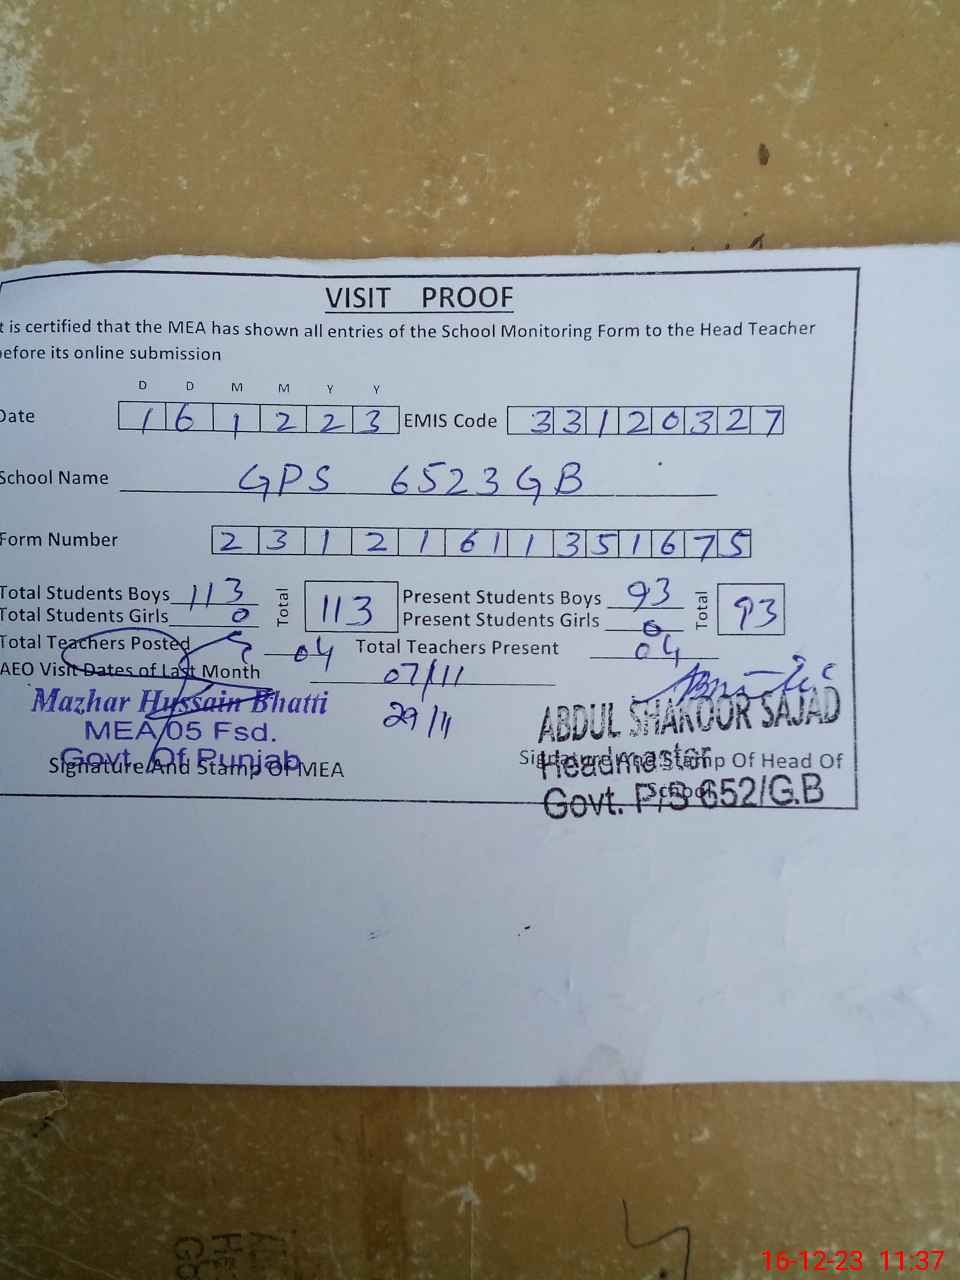 VISIT PROOF
t is certified that the MEA has shown all entries of the School Monitoring Form to the Head Teacher
efore its online submission
D D M M Y Y
Date 16 12 23 EMIS Code 33120327
School Name GPS 6523GB
Form Number 23121611351675
Total Students Boys 113 Total 113 Present Students Boys 93 Total 93
Total Students Girls 0 Present Students Girls 0
Total Teachers Posted 04 Total Teachers Present 04
AEO Visit Dates of Last Month 07/11
29/11
Mazhar Hussain Bhatti
MEA/05 Fsd.
Govt. Of Punjab
Signature And Stamp Of MEA
ABDUL SHAKOOR SAJAD
Headmaster
Govt. P/S 652/G.B
Signature And Stamp Of Head Of
School
16-12-23 11:37